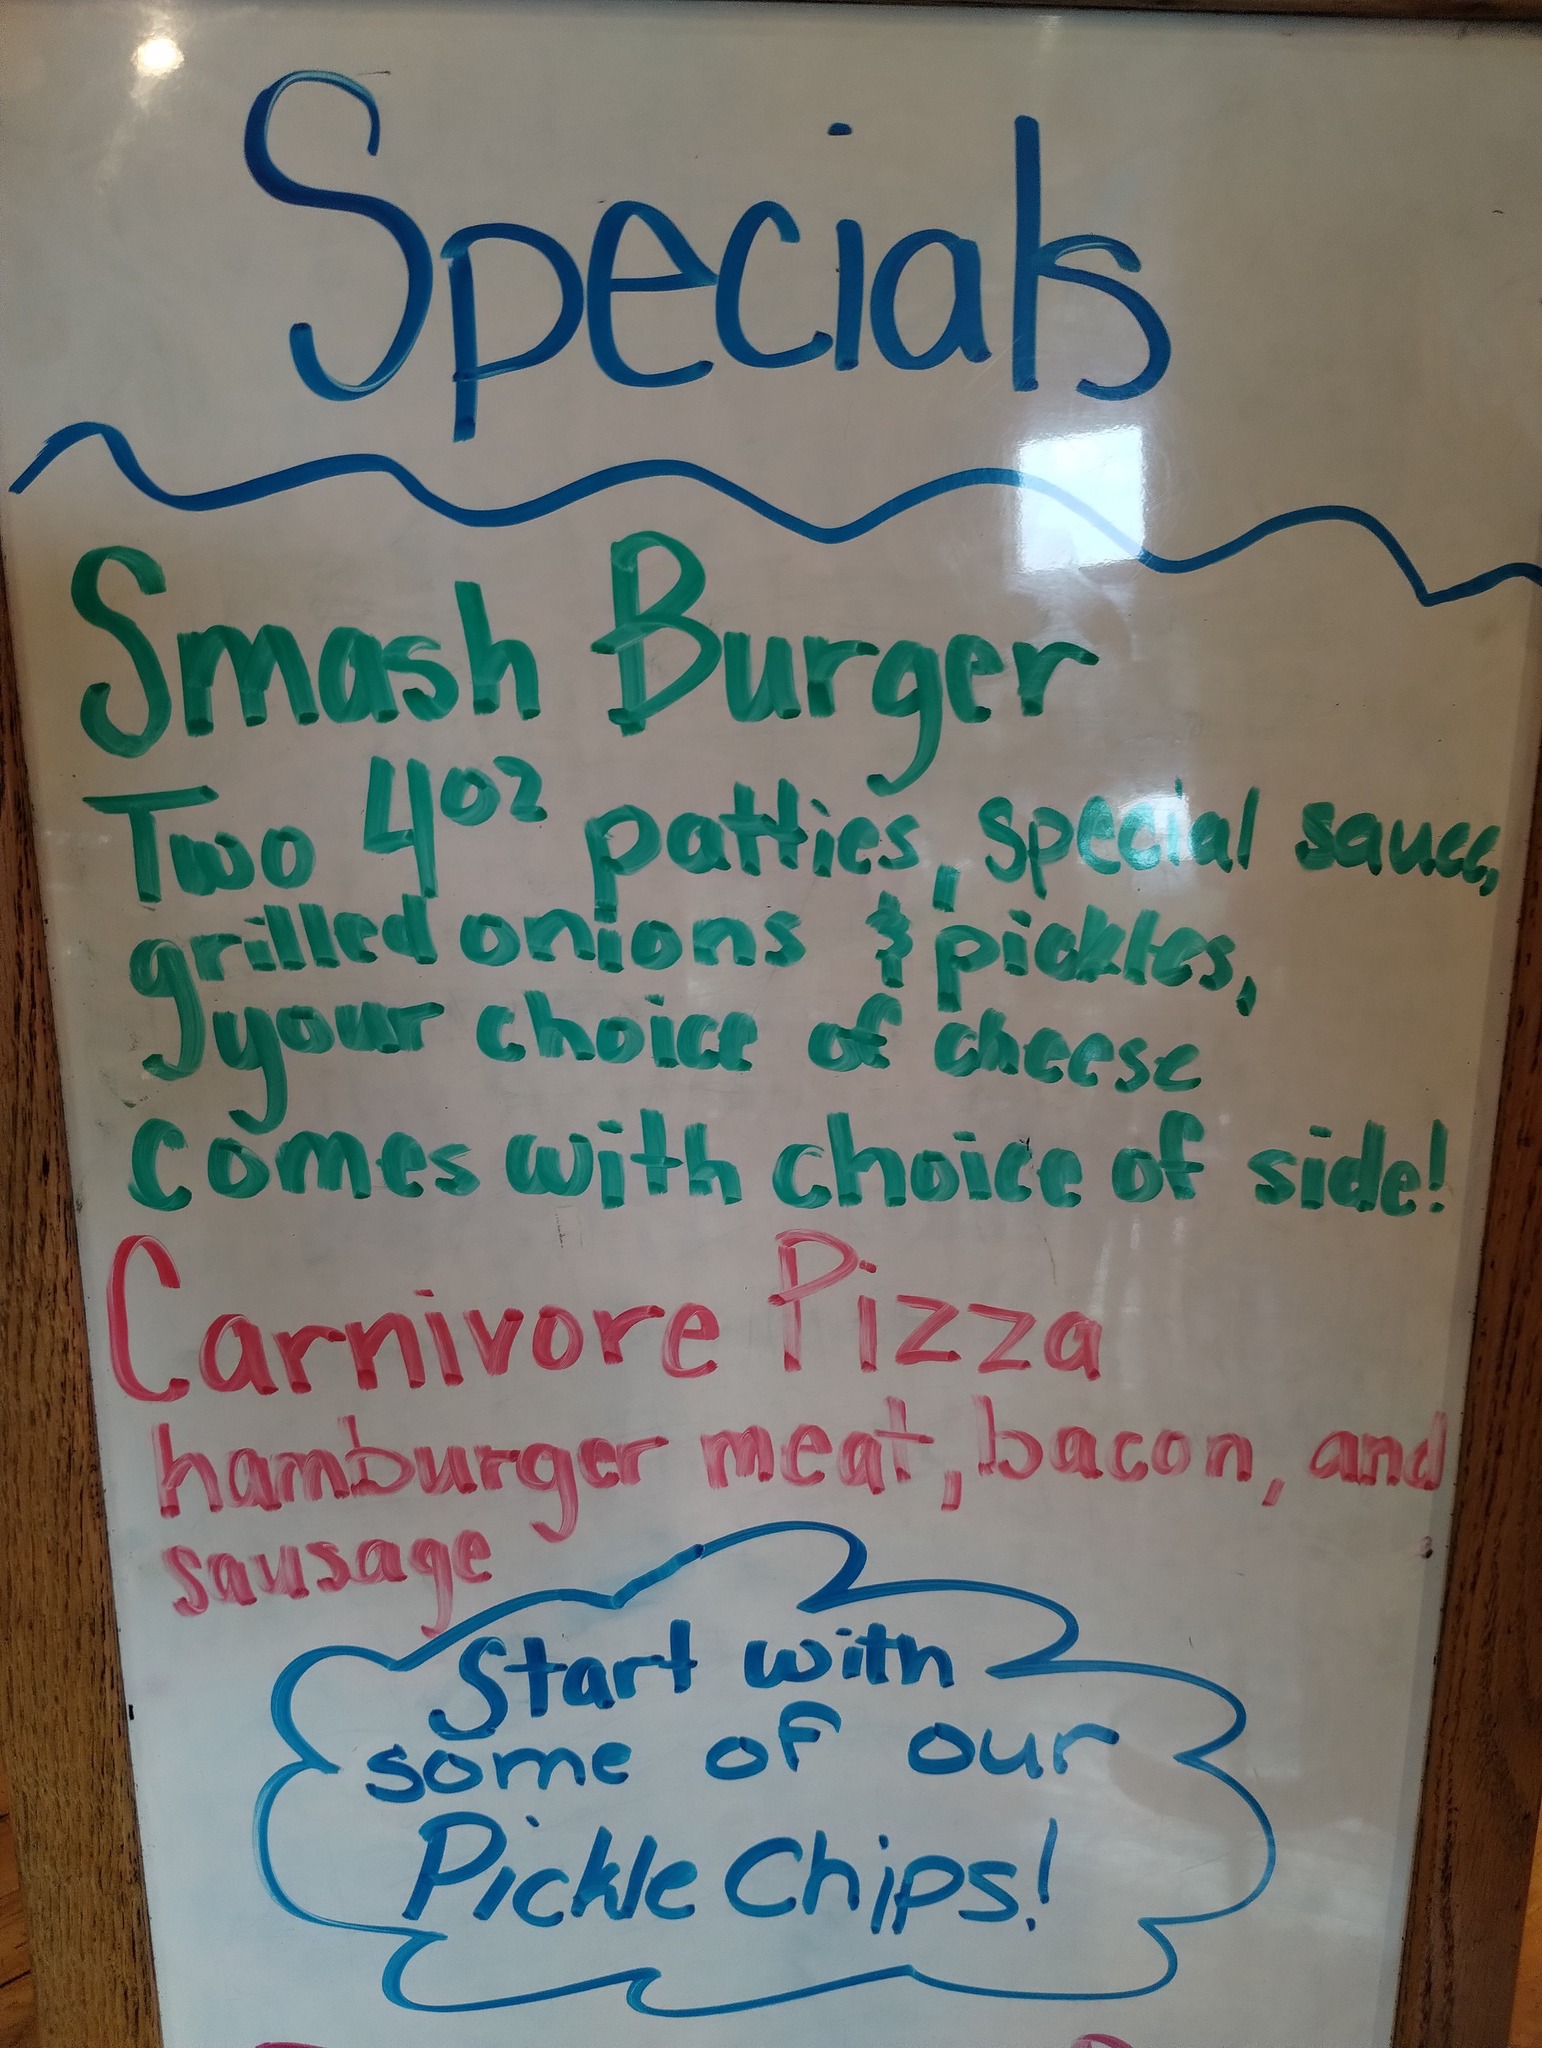 Specials
Smash Burger
Two 4oz patties, special sauce,
grilled onions & pickles,
your choice of cheese
Comes with choice of side!
Carnivore Pizza
hamburger meat, bacon, and
sausage
Start with
some of our
Pickle Chips!